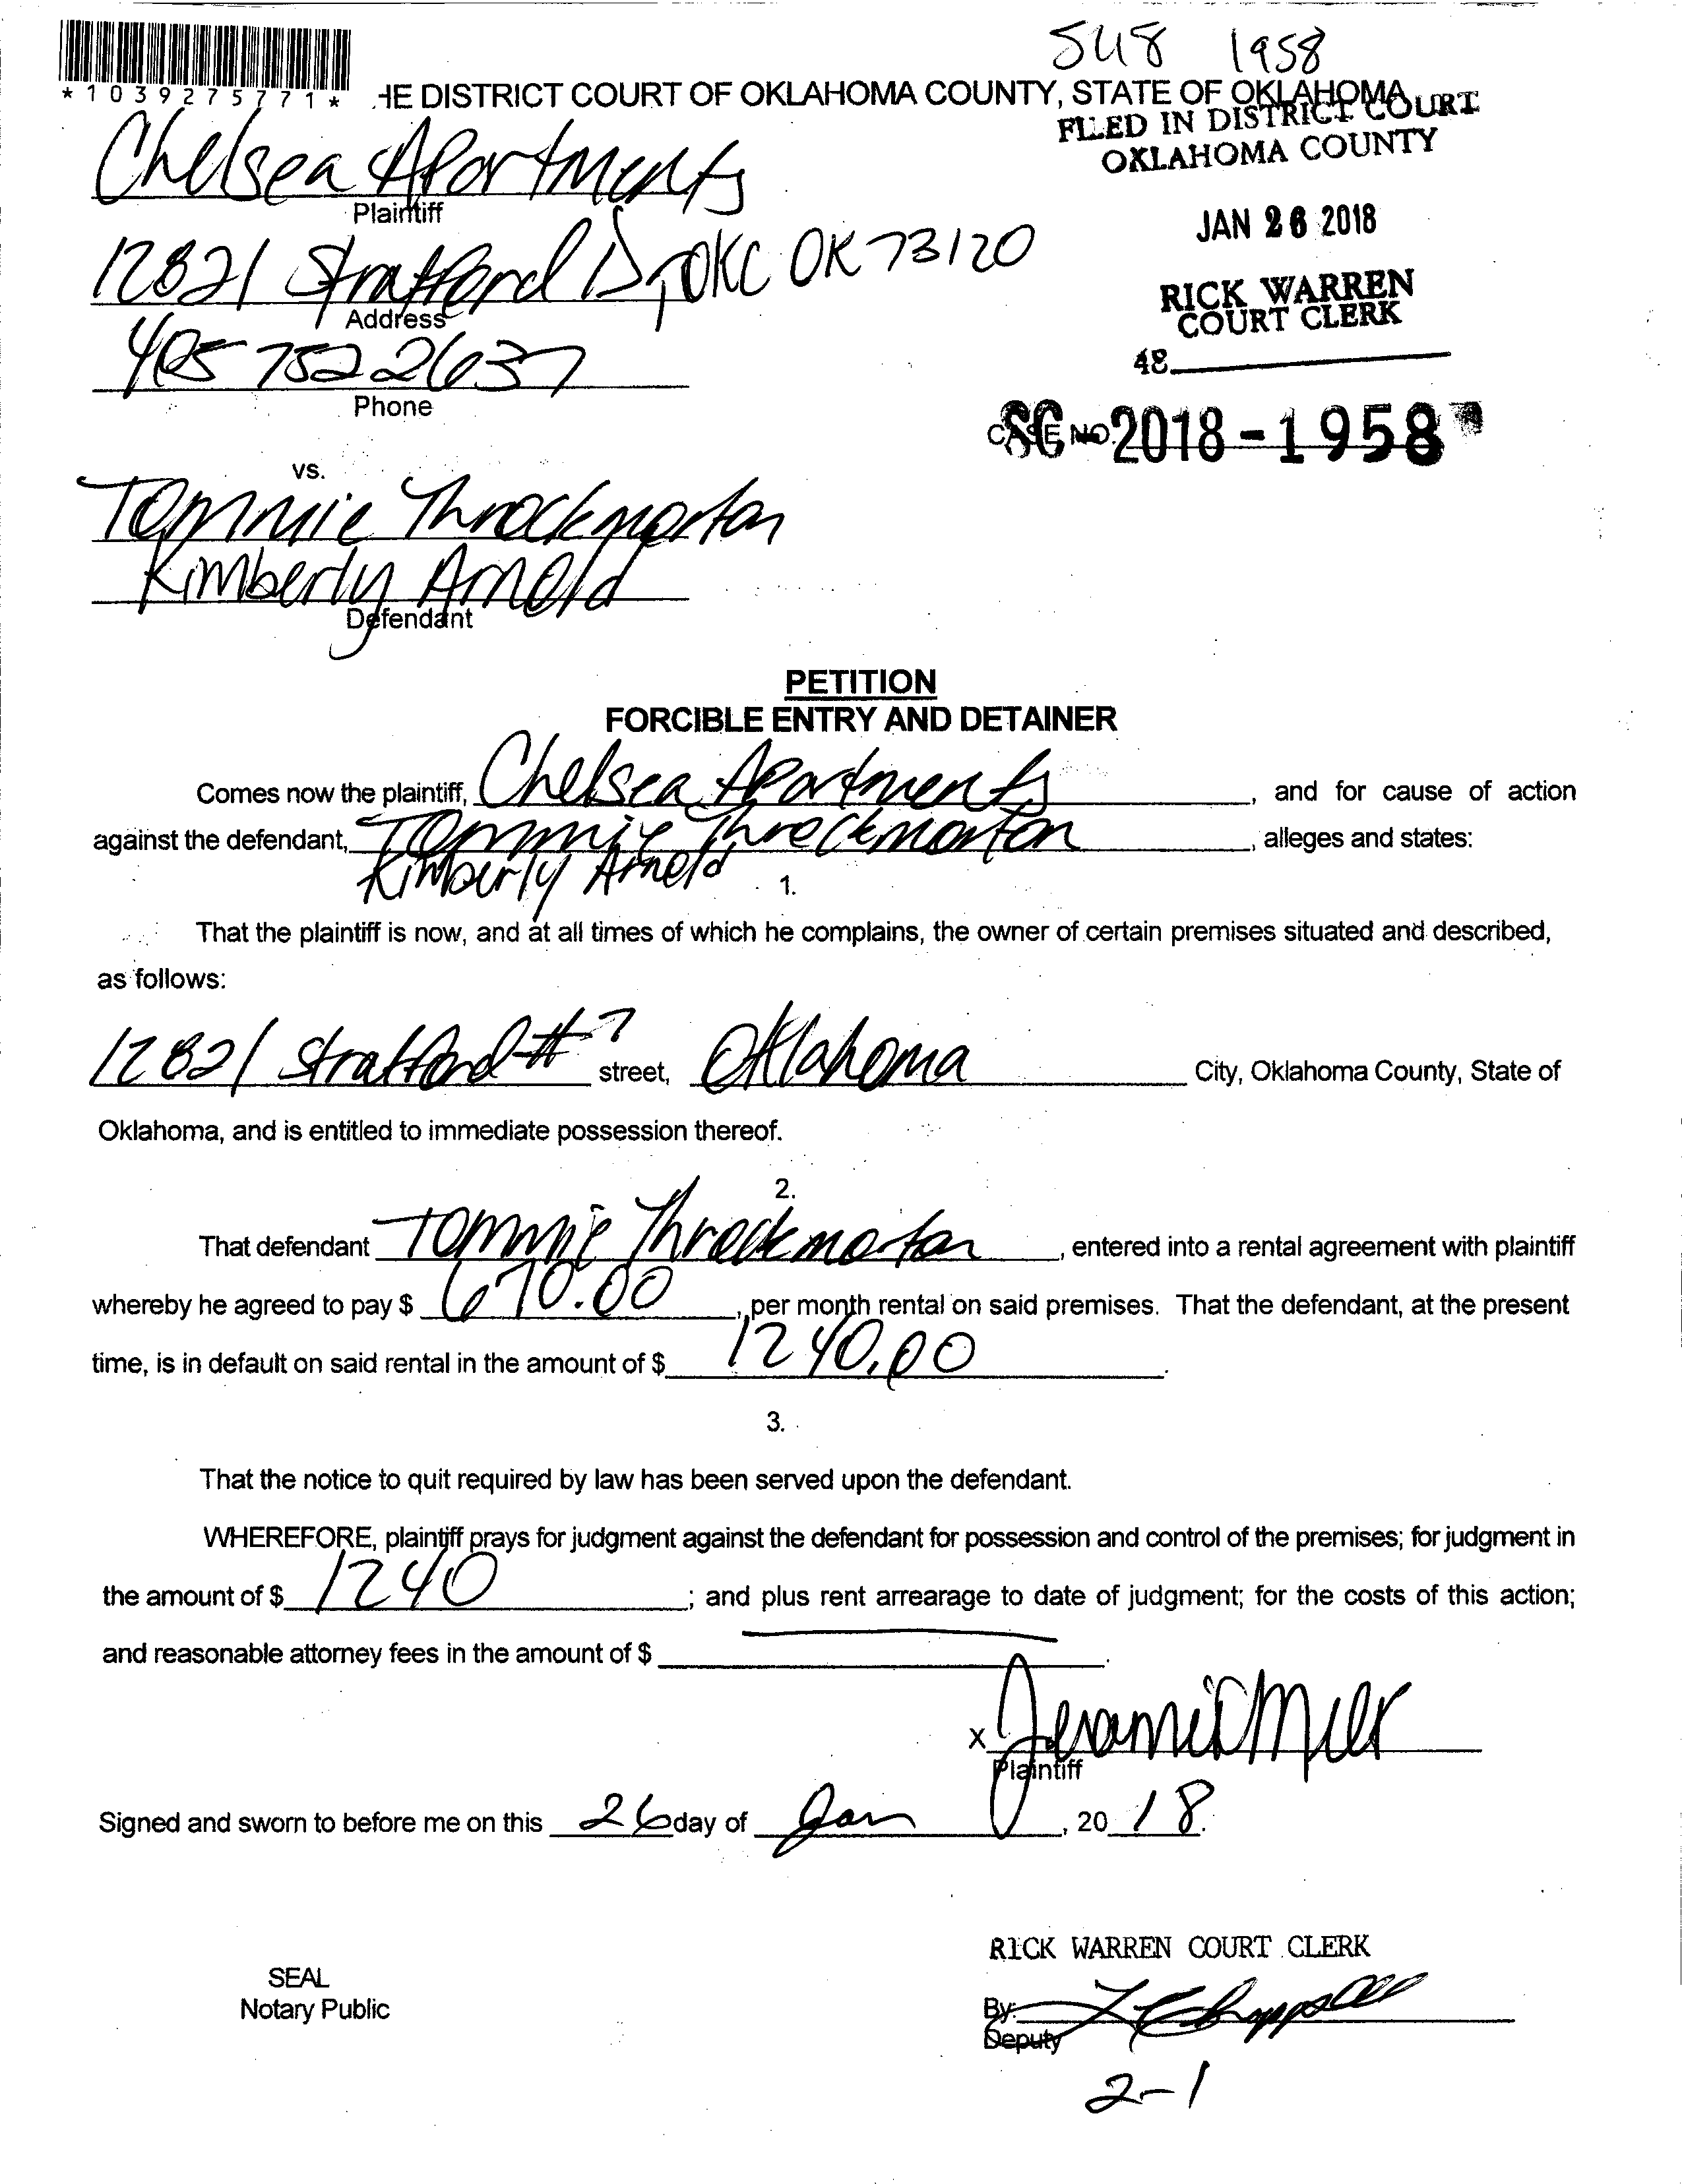 548 1958
*1039275771* HE DISTRICT COURT OF OKLAHOMA COUNTY, STATE OF OKLAHOMA
FILED IN DISTRICT COURT
OKLAHOMA COUNTY
Chelsea Apartments
Plaintiff
JAN 26 2018
12821 Stratford Dr, OKC OK 73120
Address
RICK WARREN
COURT CLERK
405 752 2637
Phone
48
CASE NO. SC 2018-1958
vs.
Tommie Throckmorton
Kimberly Arnold
Defendant
PETITION
FORCIBLE ENTRY AND DETAINER
Comes now the plaintiff, Chelsea Apartments, and for cause of action
against the defendant, Tommie Throckmorton, alleges and states:
Kimberly Arnold
1.
That the plaintiff is now, and at all times of which he complains, the owner of certain premises situated and described,
as follows:
12821 Stratford # 7 street, Oklahoma City, Oklahoma County, State of
Oklahoma, and is entitled to immediate possession thereof.
2.
That defendant Tommie Throckmorton, entered into a rental agreement with plaintiff
whereby he agreed to pay $ 670.00, per month rental on said premises. That the defendant, at the present
time, is in default on said rental in the amount of $ 1240.00.
3.
That the notice to quit required by law has been served upon the defendant.
WHEREFORE, plaintiff prays for judgment against the defendant for possession and control of the premises; for judgment in
the amount of $ 1240; and plus rent arrearage to date of judgment; for the costs of this action;
and reasonable attorney fees in the amount of $ .
x
Plaintiff
Signed and sworn to before me on this 26 day of Jan, 20 18.
RICK WARREN COURT CLERK
SEAL
Notary Public
By:
Deputy
2-1